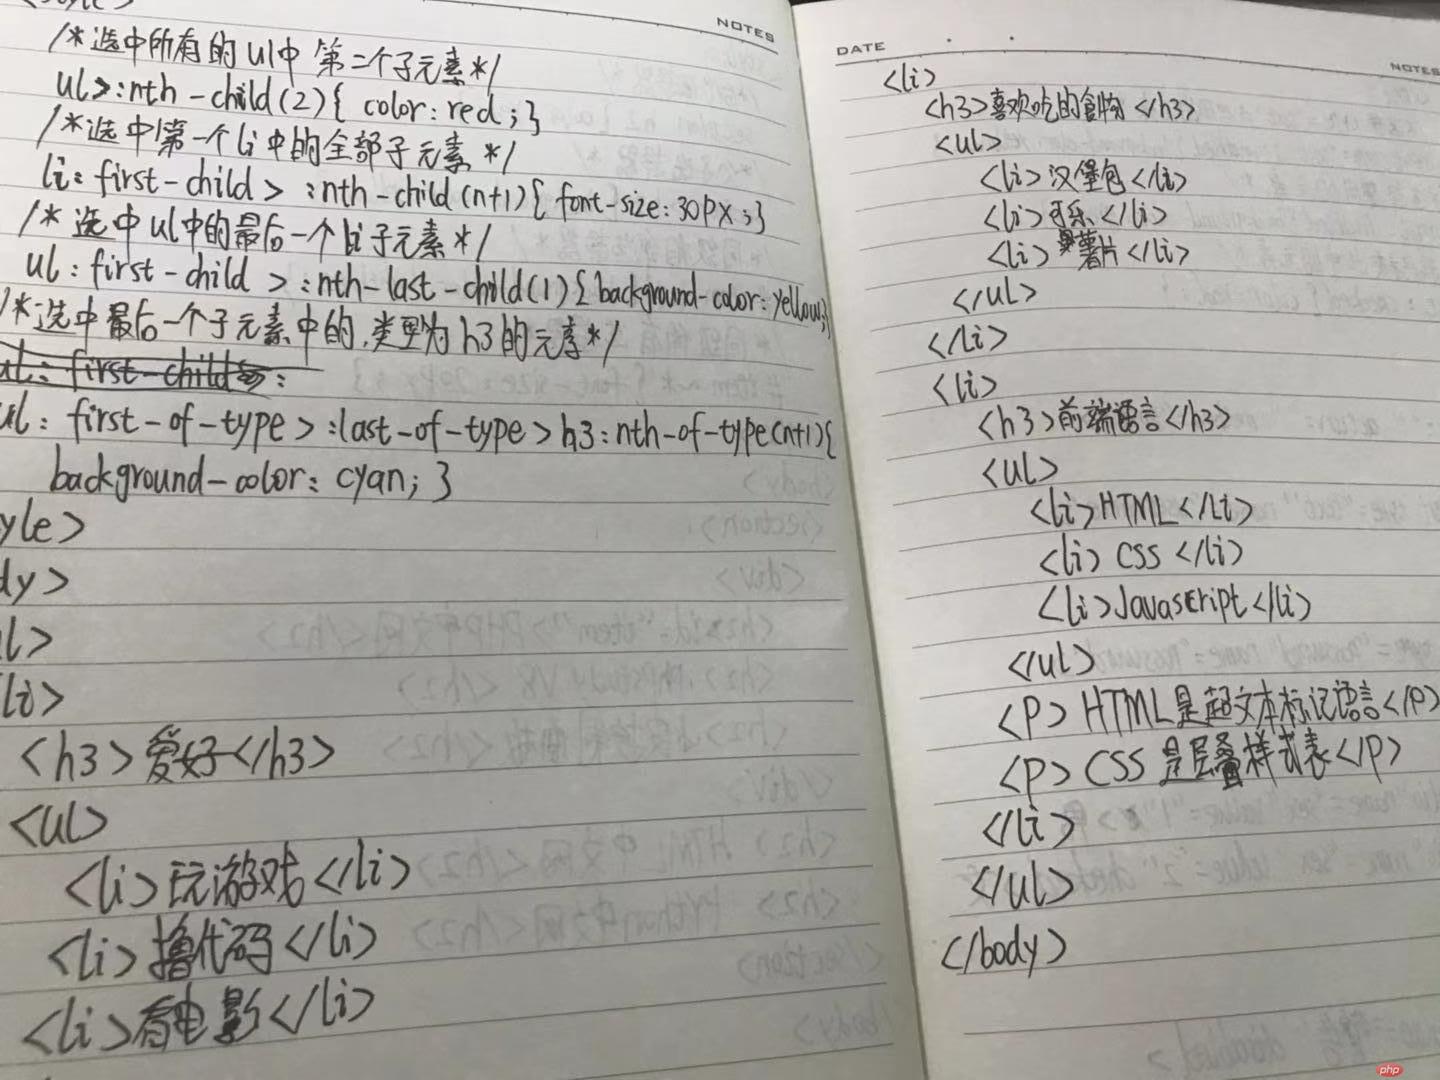 NOTES
/*选中所有的ul中 第二个子元素*/
ul>:nth-child(2){ color: red; }
/*选中第一个li中的全部子元素 */
li: first-child> :nth-child(n+1){ font-size: 30px ;}
/* 选中ul中的最后一个li子元素*/
ul: first-child > :nth-last-child(1){ background-color: yellow;}
/*选中最后一个子元素中的,类型为h3的元素*/
ul: first-child :
ul: first-of-type> :last-of-type> h3:nth-of-type(n+1){
background-color: cyan; }
yle>
dy>
l>
li>
<h3>爱好</h3>
<ul>
<li>玩游戏</li>
<li>撸代码</li>
<li>看电影</li>
DATE
NOTES
<li>
<h3>喜欢吃的食物</h3>
<ul>
<li>汉堡包</li>
<li>可乐</li>
<li>薯片</li>
</ul>
</li>
<li>
<h3>前端語言</h3>
<ul>
<li>HTML</li>
<li>CSS</li>
<li>Javascript</li>
</ul>
<P>HTML是超文本标记語言</P>
<P>CSS是层叠样式表</P>
</li>
</ul>
</body>
php